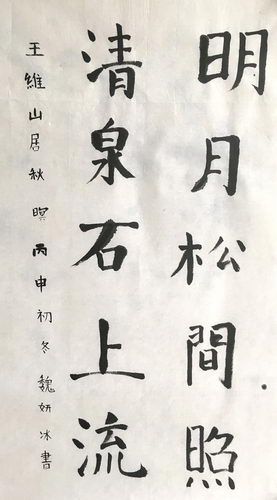 明月松間照
清泉石上流
王維山居秋暝丙申初冬魏妍冰書